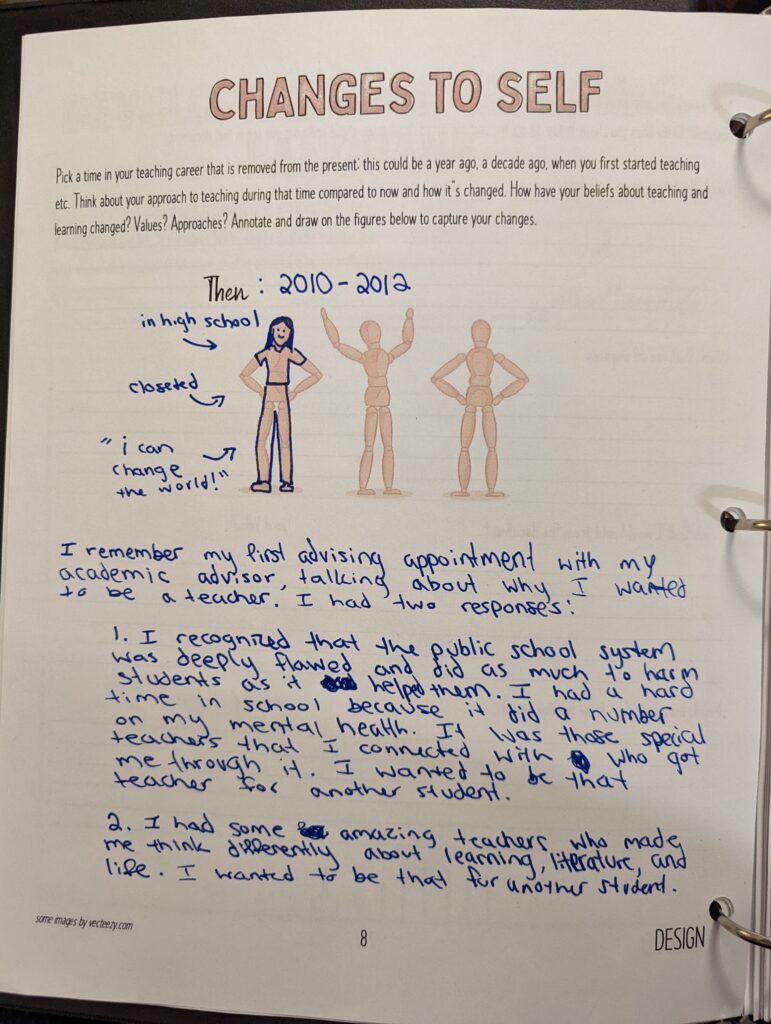 CHANGES TO SELF
Pick a time in your teaching career that is removed from the present; this could be a year ago, a decade ago, when you first started teaching
etc. Think about your approach to teaching during that time compared to now and how it"s changed. How have your beliefs about teaching and
learning changed? Values? Approaches? Annotate and draw on the figures below to capture your changes.
Then : 2010-2012
in high school
closeted
"i can
change
the world!"
I remember my first advising appointment with my
academic advisor, talking about why I wanted
to be a teacher. I had two response's:
1. I recognized that the public school system
was deeply flawed and did as much to harm
students as it helped them. I had a hard
time in school because it did a number
on my mental health. It was those special
teachers that I connected with who got
me through it. I wanted to be that
teacher for another student.
2. I had some amazing teachers who made
me think differently about learning, literature, and
life. I wanted to be that for another student.
some images by vecteezy.com
8
DESIGN